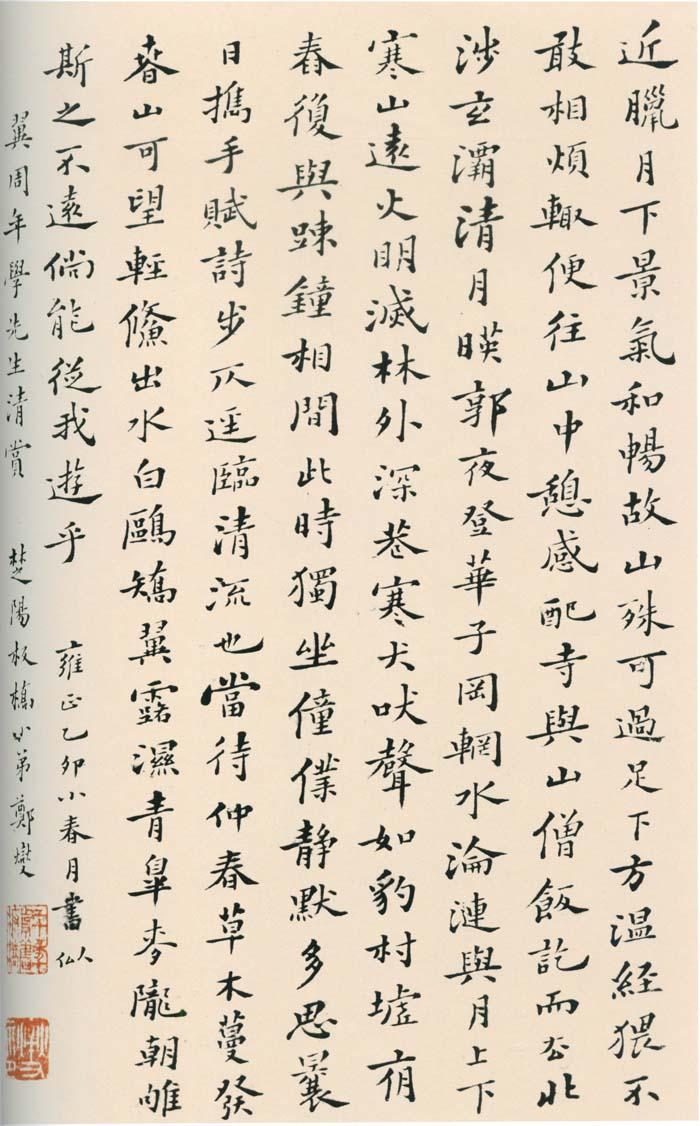 近臘月下景氣和暢故山殊可過足下方温経猥不
敢相煩輙便往山中憩感配寺與山僧飯訖而去北
涉玄灞清月暎郭夜登華子岡輞水淪漣與月上下
寒山遠火明滅林外深巷寒犬吠聲如豹村墟夜
舂復與踈鐘相間此時獨坐僮僕静默多思曩
日攜手賦詩步仄逕臨清流也當待仲春草木蔓發
春山可望輕鯈出水白鷗矯翼露濕青皋麥隴朝雊
斯之不遠倘能從我遊乎 雍正乙卯小春月書
翼周年學先生清賞 楚陽板橋小弟鄭燮